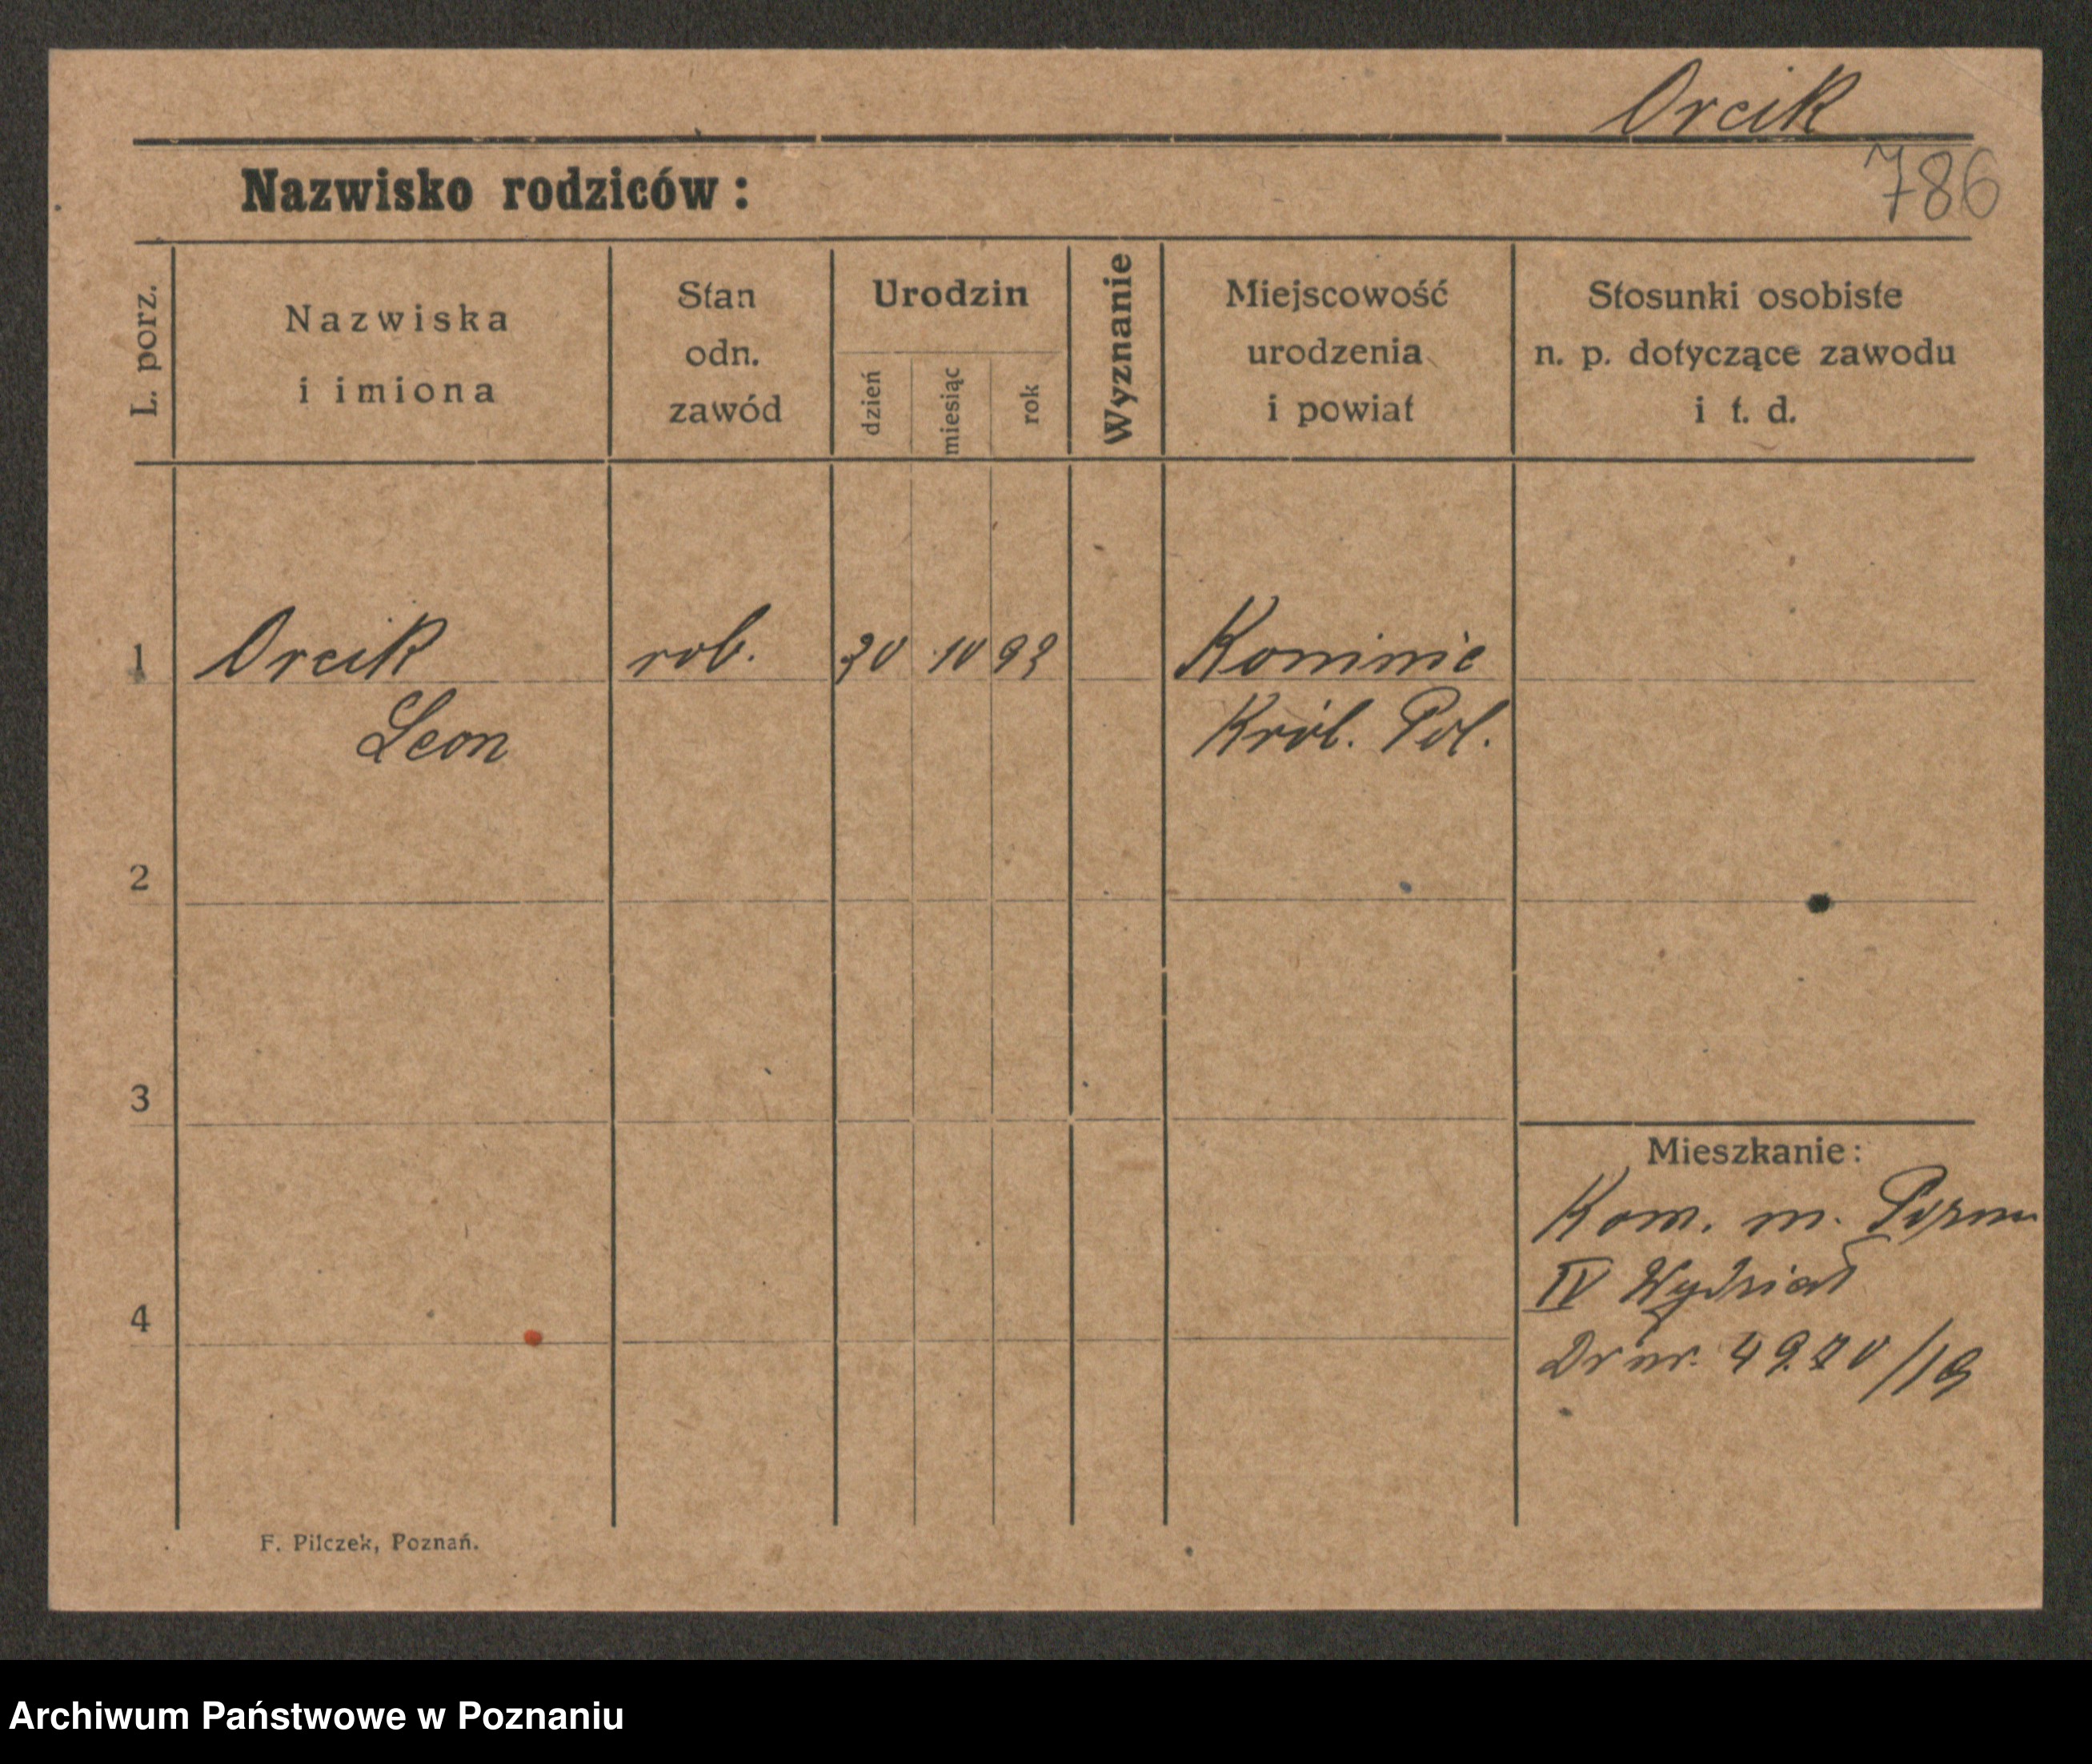 Orcik
786
Nazwisko rodziców:
L. porz.
Nazwiska
i imiona
Stan
odn.
zawód
Urodzin
dzień
miesiąc
rok
Wyznanie
Miejscowość
urodzenia
i powiat
Stosunki osobiste
n. p. dotyczące zawodu
i t. d.
1 Orcik rob. 10
Leon Król. Pol.
2
3
Mieszkanie:
Kom. m. Pozna
IV Wydział
4
/19
F. Pilczek, Poznań.
Archiwum Państwowe w Poznaniu